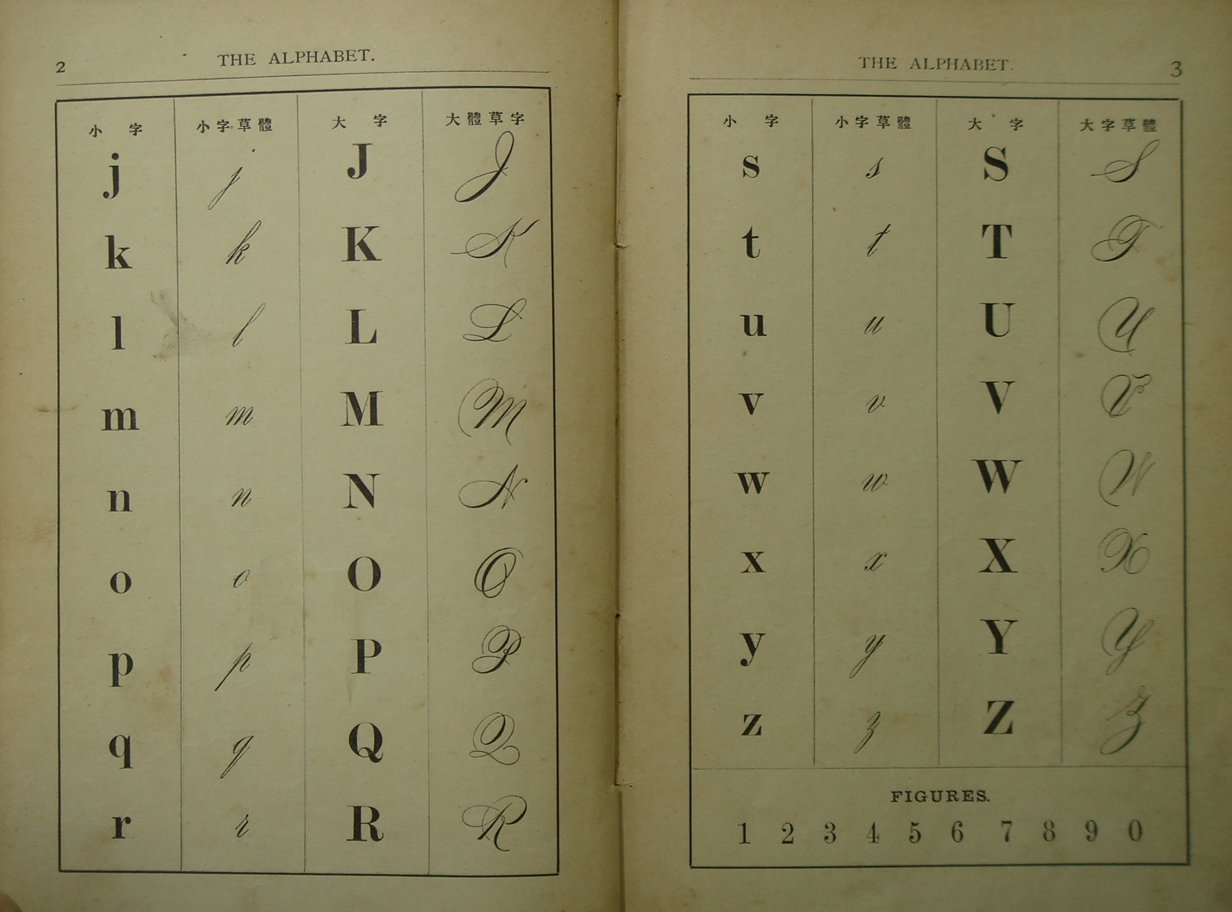 2 THE ALPHABET.
小字 小字草體 大字 大體草字
j j J J
k k K K
l l L L
m m M M
n n N N
o o O O
p p P P
q q Q Q
r r R R
THE ALPHABET. 3
小字 小字草體 大字 大字草體
s s S S
t t T T
u u U U
v v V V
w w W W
x x X X
y y Y Y
z z Z Z
FIGURES.
1 2 3 4 5 6 7 8 9 0